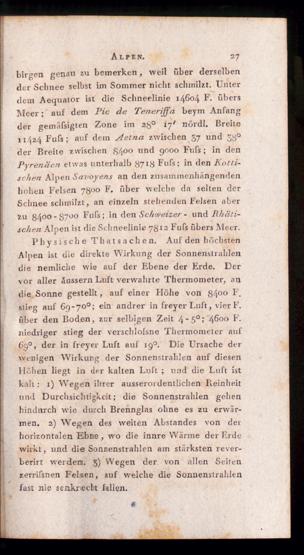 ALPEN. 27
birgen genau zu bemerken, weil über derselben
der Schnee selbst im Sommer nicht schmilzt. Unter
dem Aequator ist die Schneelinie 14604 F. übers
Meer; auf dem Pic de Teneriffa beym Anfang
der gemäſsigten Zone im 28° 17′ nördl. Breite
11424 Fuſs; auf dem Aetna zwischen 37 und 38°
der Breite zwischen 8400 und 9000 Fuſs; in den
Pyrenäen etwas unterhalb 8718 Fuſs; in den Kotti-
schen Alpen Savoyens an den zusammenhängenden
hohen Felsen 7800 F. über welche da selten der
Schnee schmilzt, an einzeln stehenden Felsen aber
zu 8400-8700 Fuſs; in den Schweizer- und Rhäti-
schen Alpen ist die Schneelinie 7812 Fuſs übers Meer.
Physische Thatsachen. Auf den höchsten
Alpen ist die direkte Wirkung der Sonnenstrahlen
die nemliche wie auf der Ebene der Erde. Der
vor aller äussern Luft verwahrte Thermometer, an
die Sonne gestellt, auf einer Höhe von 8400 F.
stieg auf 69-70°; ein andrer in freyer Luft, vier F.
über den Boden, zur selbigen Zeit 4-5°; 4600 F.
niedriger stieg der verschloſsne Thermometer auf
69°, der in freyer Luft auf 19°. Die Ursache der
wenigen Wirkung der Sonnenstrahlen auf diesen
Höhen liegt in der kalten Luft; und die Luft ist
kalt: 1) Wegen ihrer ausserordentlichen Reinheit
und Durchsichtigkeit; die Sonnenstrahlen gehen
hindurch wie durch Brennglas ohne es zu erwär-
men. 2) Wegen des weiten Abstandes von der
horizontalen Ebne, wo die innre Wärme der Erde
wirkt, und die Sonnenstrahlen am stärksten rever-
berirt werden. 3) Wegen der von allen Seiten
zerriſsnen Felsen, auf welche die Sonnenstrahlen
fast nie senkrecht fallen.